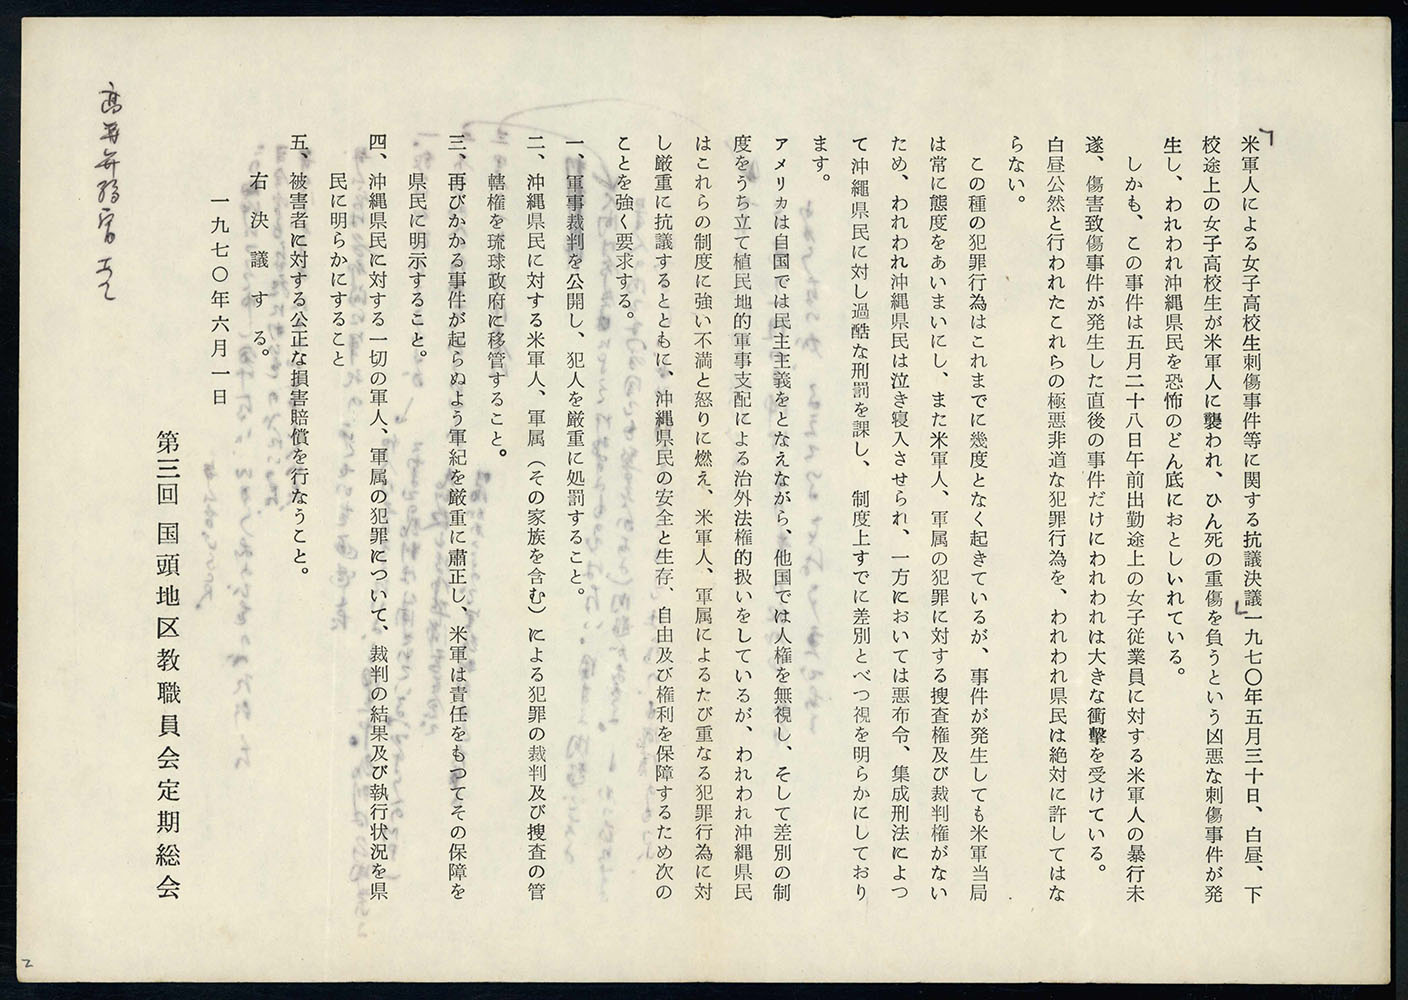 「米軍人による女子高校生刺傷事件等に関する抗議決議」一九七〇年五月三十日、白昼、下
校途上の女子高校生が米軍人に襲われ、ひん死の重傷を負うという凶悪な刺傷事件が発
生し、われわれ沖縄県民を恐怖のどん底におとしいれている。
しかも、この事件は五月二十八日午前出勤途上の女子従業員に対する米軍人の暴行未
遂、傷害致傷事件が発生した直後の事件だけにわれわれは大きな衝撃を受けている。
白昼公然と行われたこれらの極悪非道な犯罪行為を、われわれ県民は絶対に許してはな
らない。
この種の犯罪行為はこれまでに幾度となく起きているが、事件が発生しても米軍当局
は常に態度をあいまいにし、また米軍人、軍属の犯罪に対する捜査権及び裁判権がない
ため、われわれ沖縄県民は泣き寝入させられ、一方においては悪布令、集成刑法によつ
て沖縄県民に対し過酷な刑罰を課し、制度上すでに差別とべつ視を明らかにしており
ます。
アメリカは自国では民主主義をとなえながら、他国では人権を無視し、そして差別の制
度をうち立て植民地的軍事支配による治外法権的扱いをしているが、われわれ沖縄県民
はこれらの制度に強い不満と怒りに燃え、米軍人、軍属によるたび重なる犯罪行為に対
し厳重に抗議するとともに、沖縄県民の安全と生存、自由及び権利を保障するため次の
ことを強く要求する。
一、軍事裁判を公開し、犯人を厳重に処罰すること。
二、沖縄県民に対する米軍人、軍属（その家族を含む）による犯罪の裁判及び捜査の管
轄権を琉球政府に移管すること。
三、再びかかる事件が起らぬよう軍紀を厳重に粛正し、米軍は責任をもつてその保障を
県民に明示すること。
四、沖縄県民に対する一切の軍人、軍属の犯罪について、裁判の結果及び執行状況を県
民に明らかにすること
五、被害者に対する公正な損害賠償を行なうこと。
右決議する。
一九七〇年六月一日
第三回 国頭地区教職員会定期総会
2